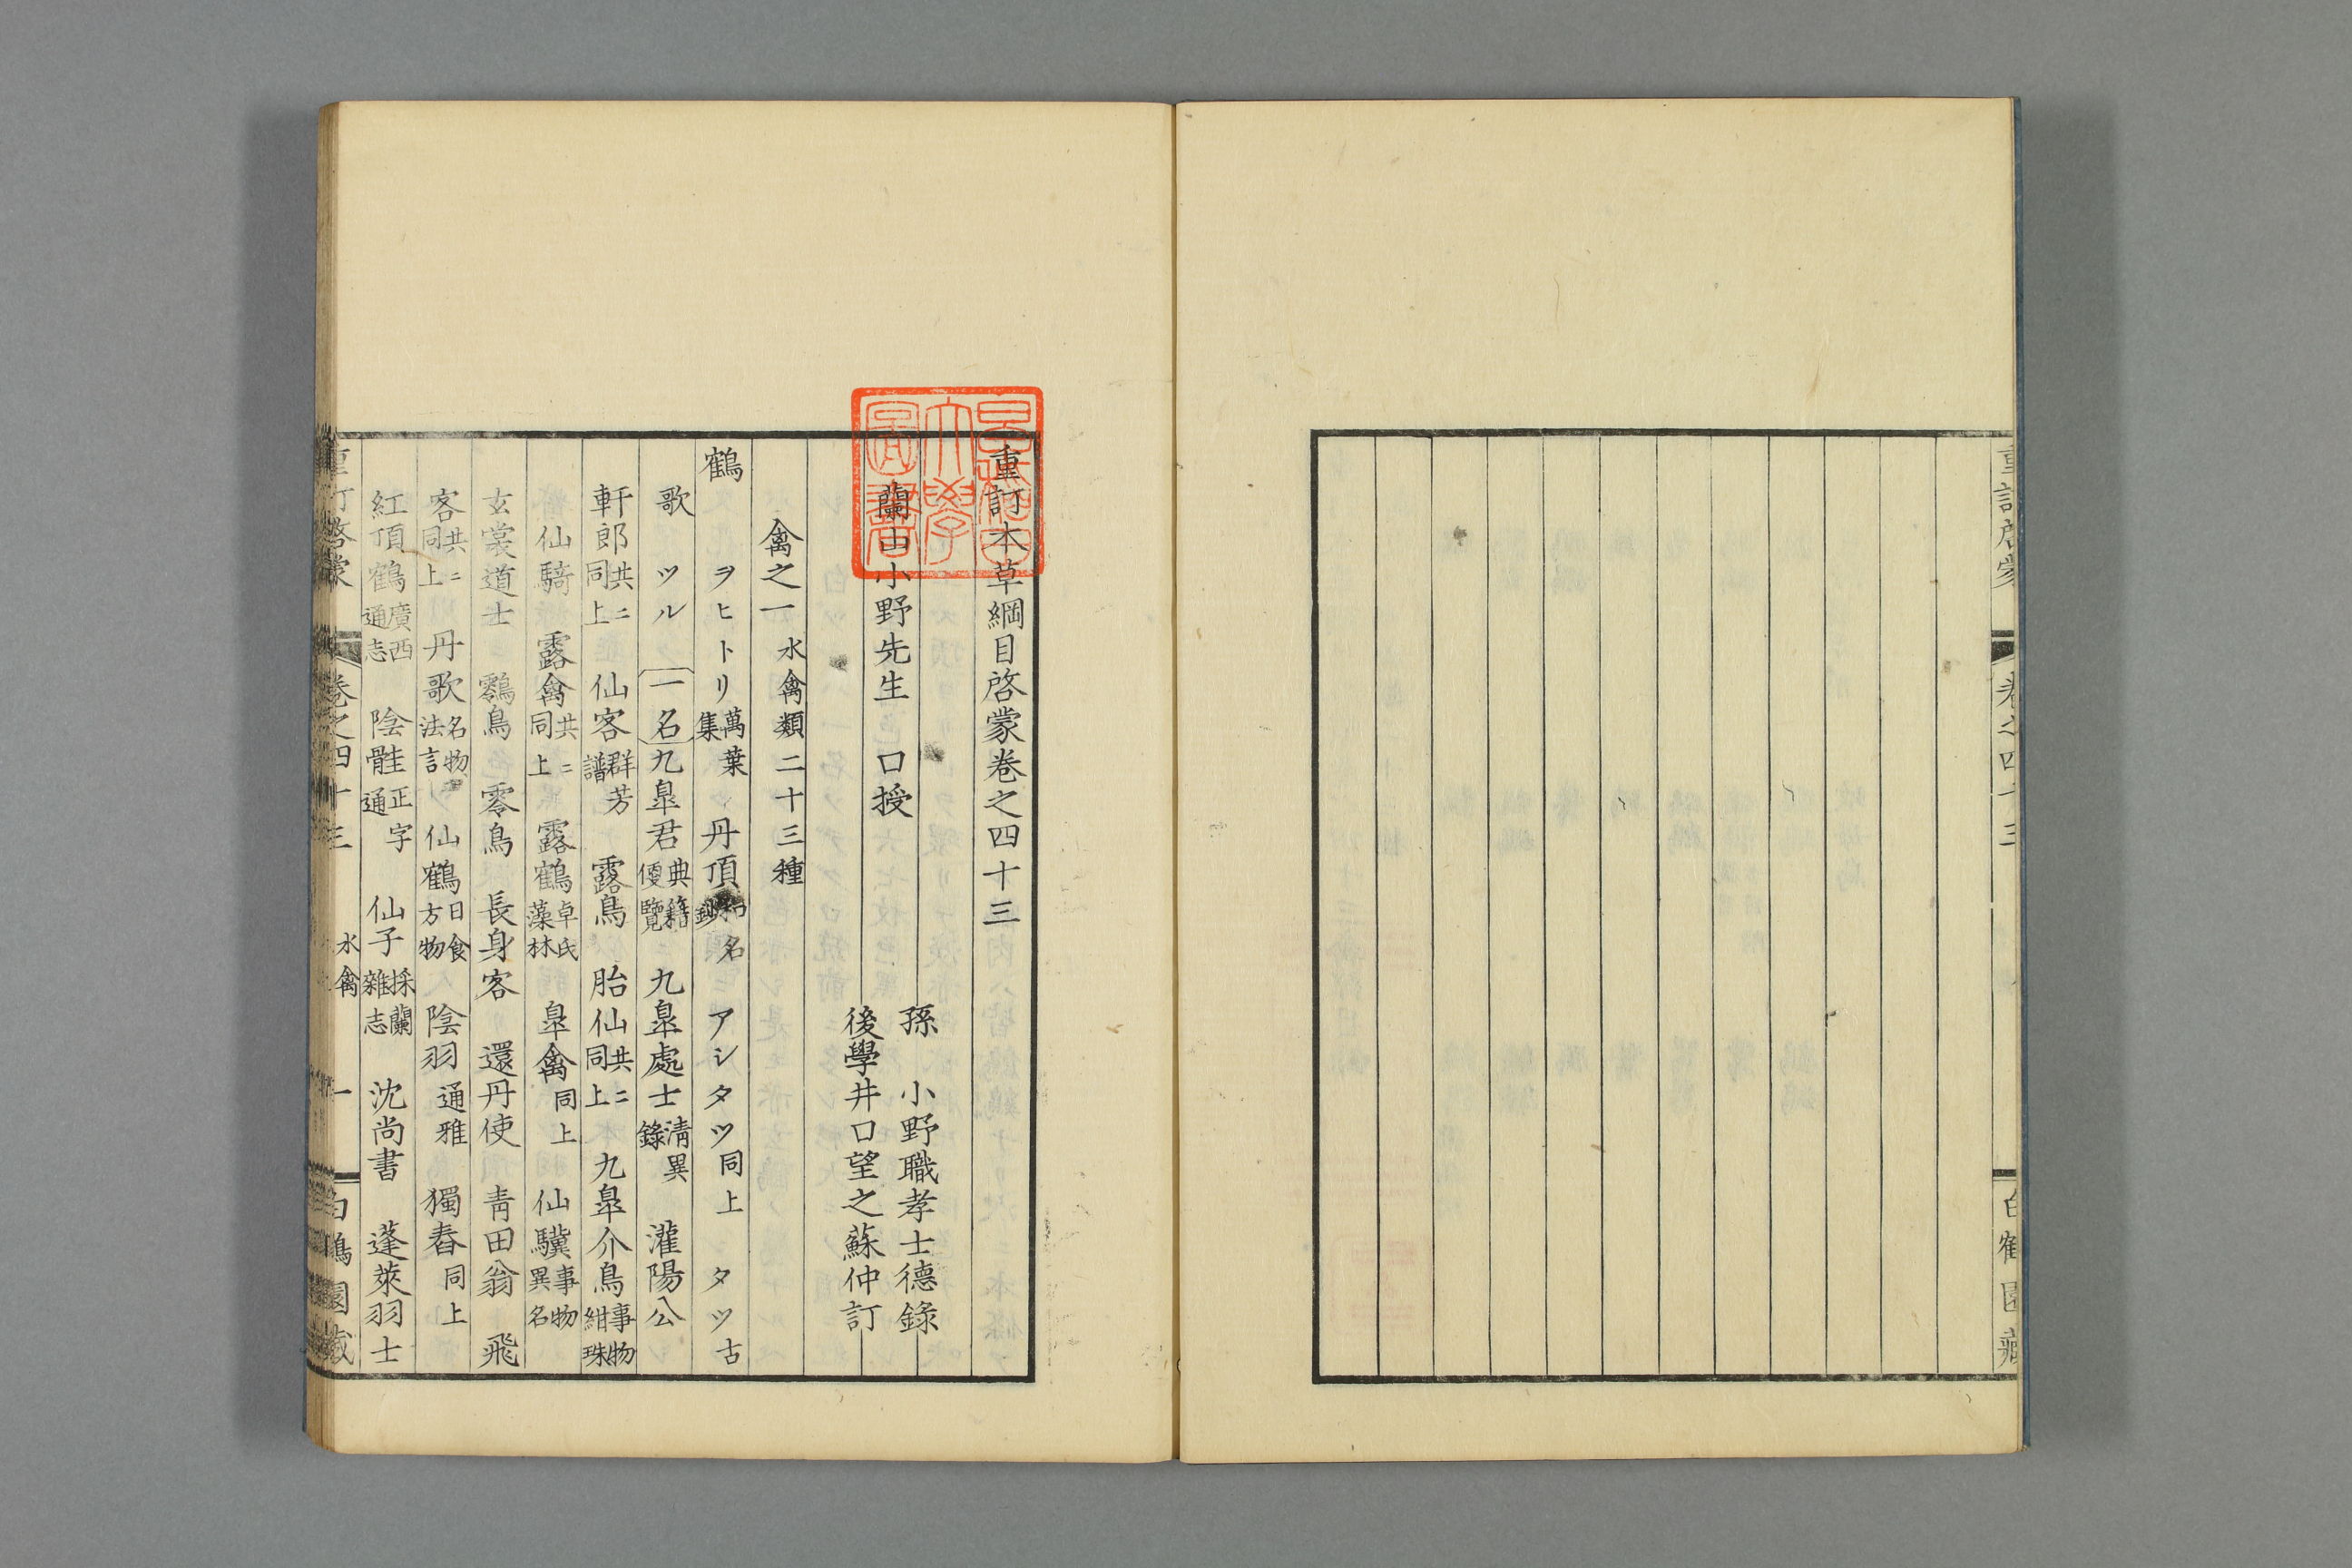 重訂啓蒙　卷之四十三　白鶴園藏
早稲田大學圖書
重訂本草綱目啓蒙卷之四十三
蘭山小野先生　口授
孫　小野職孝士德錄
後學井口望之蘇仲訂
禽之一　水禽類二十三種
鶴　ヲヒトリ萬葉集　丹頂和名鈔　アシタヅ同上　タヅ古
歌　ツル　一名九皐君典籍便覽　九皐處士淸異錄　灌陽公
軒郎共ニ同上　仙客群芳譜　露鳥　胎仙共ニ同上　九皐介鳥事物紺珠
仙騎　露禽共ニ同上　露鶴卓氏藻林　皐禽同上　仙驥事物異名
玄裳道士　鸖鳥　零鳥　長身客　還丹使　靑田翁　飛
客共ニ同上　丹歌名物法言　仙鶴日食方物　陰羽通雅　獨舂同上
紅頂鶴廣西通志　陰䳡正字通　仙子採蘭雜志　沈尚書　蓬萊羽士
重訂啓蒙　卷之四十三　水禽　一　白鶴園藏